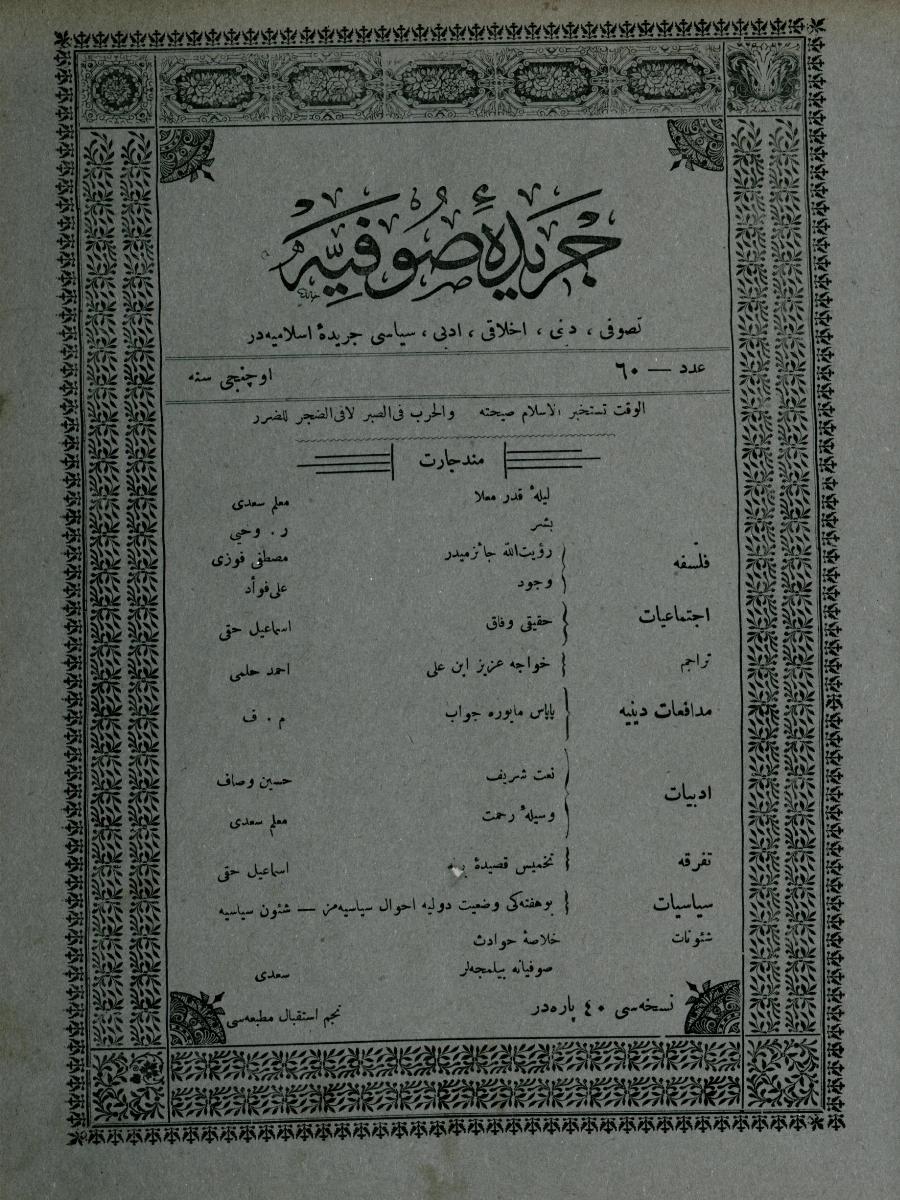 جريدۀ صوفيه
تصوفی ، دینی ، اخلاقی ، ادبی ، سیاسی جریدۀ اسلامیه‌در
عدد — ٦٠ اوچنجی سنه
الوقت تستخبر الاسلام صیحته والحرب فی‌الصبر لافی‌الضجر للضرر
مندجارت
لیلۀ قدر معلا معلم سعدی
بشر ر . وحیی
فلسفه رؤیت‌الله جائزمیدر مصطفی فوزی
وجود علی فوأد
اجتماعیات حقیقی وفاق اسماعیل حقی
تراجم خواجه عزیز ابن علی احمد حلمی
مدافعات دینیه پاپاس مابوره جواب م . ف
ادبیات نعت شریف حسین وصاف
وسیلۀ رحمت معلم سعدی
تفرقه تخمیس قصیدۀ اسماعیل حقی
سیاسیات بوهفته‌کی وضعیت دولیه احوال سیاسیه‌مز — شئون سیاسیه
شئونات خلاصۀ حوادث
صوفیانه بیلمجه‌لر سعدی
نسخه‌سی ٤٠ پاره‌در نجم استقبال مطبعه‌سی